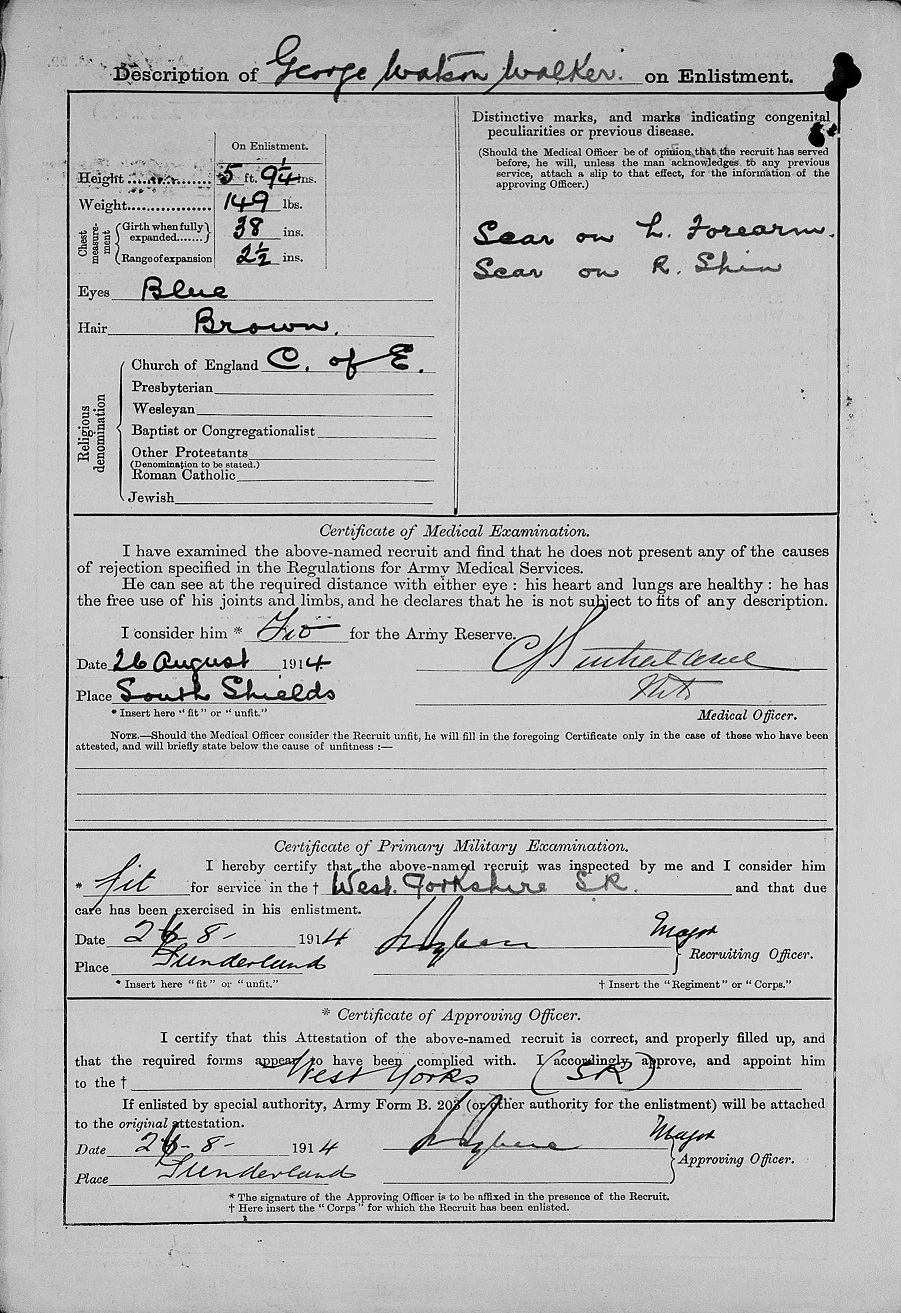 Description of George Watson Walker. on Enlistment.
On Enlistment.
Height 5 ft. 9¼ ins.
Weight 149 lbs.
Chest measurement
Girth when fully expanded 38 ins.
Range of expansion 2½ ins.
Eyes Blue
Hair Brown.
Religious denomination
Church of England C. of E.
Presbyterian
Wesleyan
Baptist or Congregationalist
Other Protestants
(Denomination to be stated.)
Roman Catholic
Jewish
Distinctive marks, and marks indicating congenital
peculiarities or previous disease.
(Should the Medical Officer be of opinion that the recruit has served
before, he will, unless the man acknowledges to any previous
service, attach a slip to that effect, for the information of the
approving Officer.)
Scar on L. Forearm.
Scar on R. Shin
Certificate of Medical Examination.
I have examined the above-named recruit and find that he does not present any of the causes
of rejection specified in the Regulations for Army Medical Services.
He can see at the required distance with either eye : his heart and lungs are healthy : he has
the free use of his joints and limbs, and he declares that he is not subject to fits of any description.
I consider him * Fit for the Army Reserve.
Date 26 August 1914.
Place South Shields
* Insert here "fit" or "unfit."
Medical Officer.
NOTE.—Should the Medical Officer consider the Recruit unfit, he will fill in the foregoing Certificate only in the case of those who have been
attested, and will briefly state below the cause of unfitness :—
Certificate of Primary Military Examination.
I hereby certify that the above-named recruit was inspected by me and I consider him
* fit for service in the † West. Yorkshire S.R. and that due
care has been exercised in his enlistment.
Date 26-8- 1914 Major
Place Sunderland Recruiting Officer.
* Insert here "fit" or "unfit."
† Insert the "Regiment" or "Corps."
* Certificate of Approving Officer.
I certify that this Attestation of the above-named recruit is correct, and properly filled up, and
that the required forms appear to have been complied with. I accordingly approve, and appoint him
to the † West Yorks (SR)
If enlisted by special authority, Army Form B. 203 (or other authority for the enlistment) will be attached
to the original attestation.
Date 26-8- 1914 Major
Place Sunderland Approving Officer.
* The signature of the Approving Officer is to be affixed in the presence of the Recruit.
† Here insert the "Corps" for which the Recruit has been enlisted.